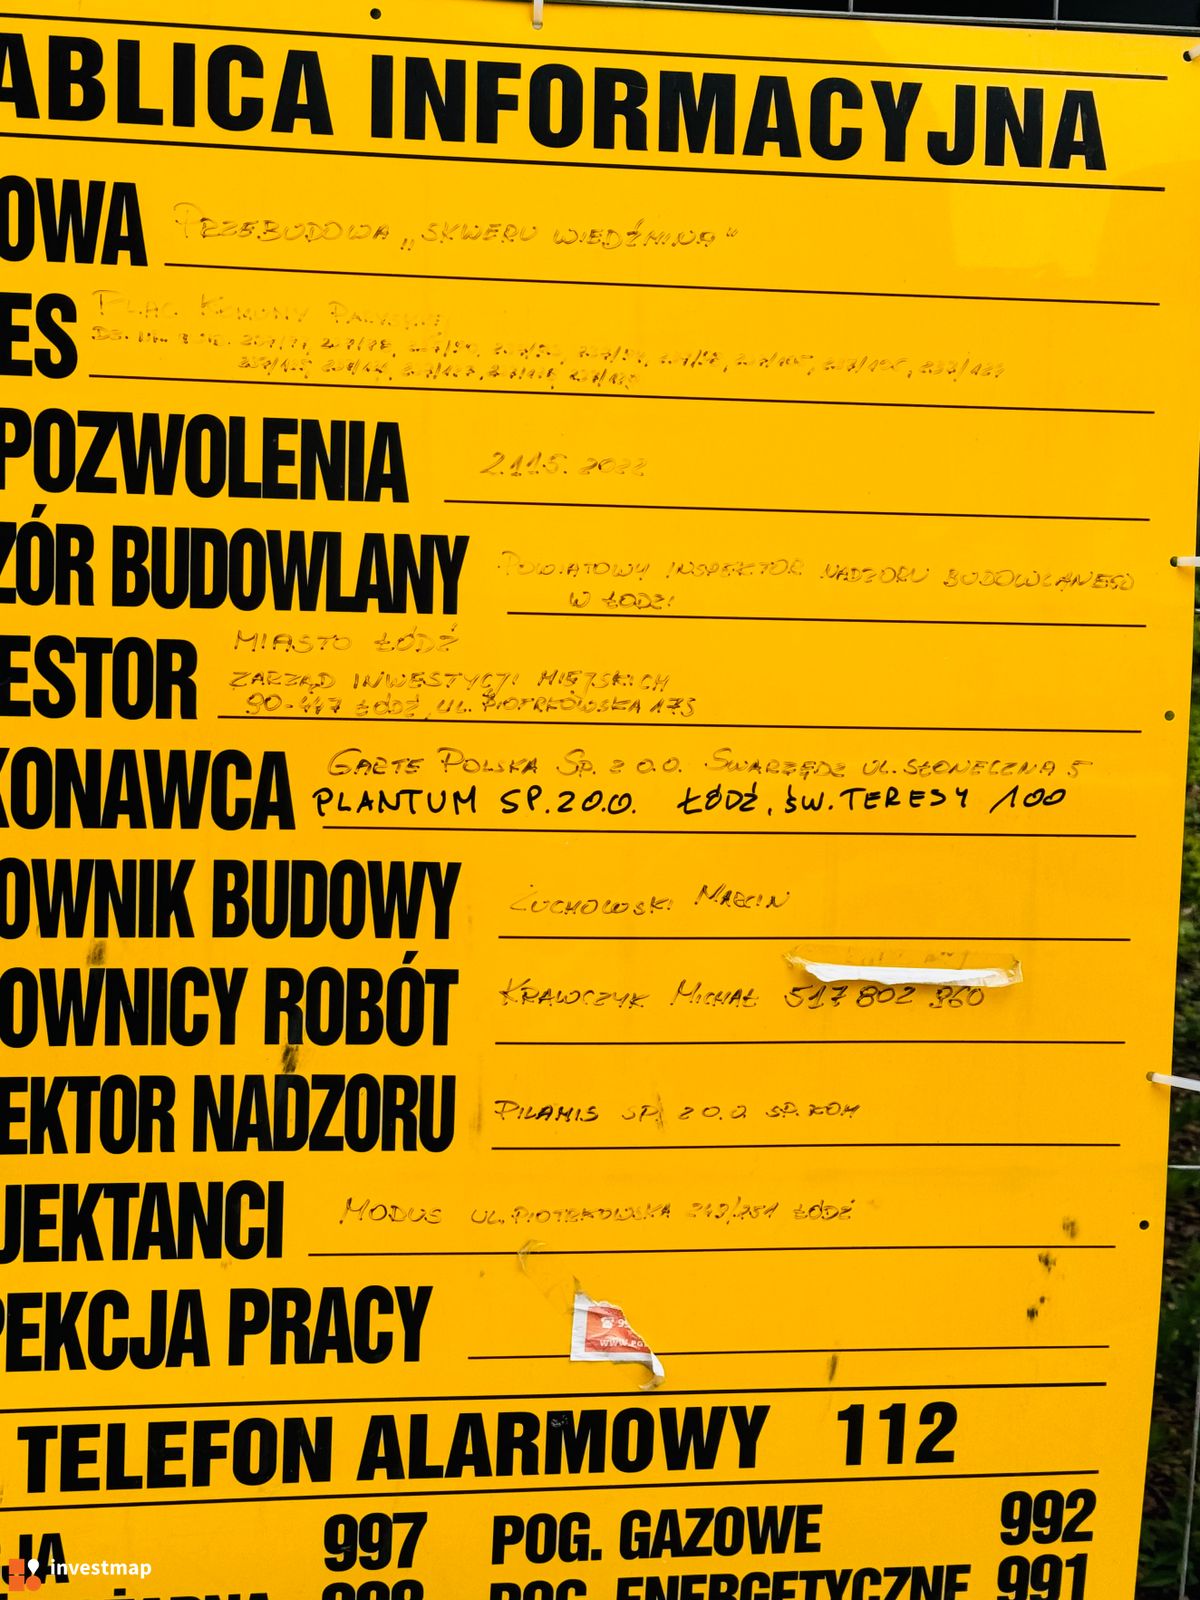 ABLICA INFORMACYJNA
OWA PRZEBUDOWA „SKWERU WIEDŹMINA"
ES PLAC KOMUNY PARYSKIEJ
POZWOLENIA 2115.2022
ZÓR BUDOWLANY POWIATOWY INSPEKTOR NADZORU BUDOWLANEGO
W ŁODZI
MIASTO ŁÓDŹ
ESTOR ZARZĄD INWESTYCJI MIEJSKICH
90-447 ŁÓDŹ, UL. PIOTRKOWSKA 175
GARTE POLSKA SP. Z O.O. SWARZĘDZ UL. SŁONECZNA 5
KONAWCA PLANTUM SP. ZO.O. ŁÓDŹ, ŚW. TERESY 100
OWNIK BUDOWY ŻUCHOWSKI MARCIN
OWNICY ROBÓT KRAWCZYK MICHAŁ 517 802 960
EKTOR NADZORU PILAMIS SP. Z O.O. SP. KOM
JEKTANCI MODUS UL. PIOTRKOWSKA ŁÓDŹ
PEKCJA PRACY
TELEFON ALARMOWY 112
JA 997 POG. GAZOWE 992
998 POG. ENERGETYCZNE 991
investmap